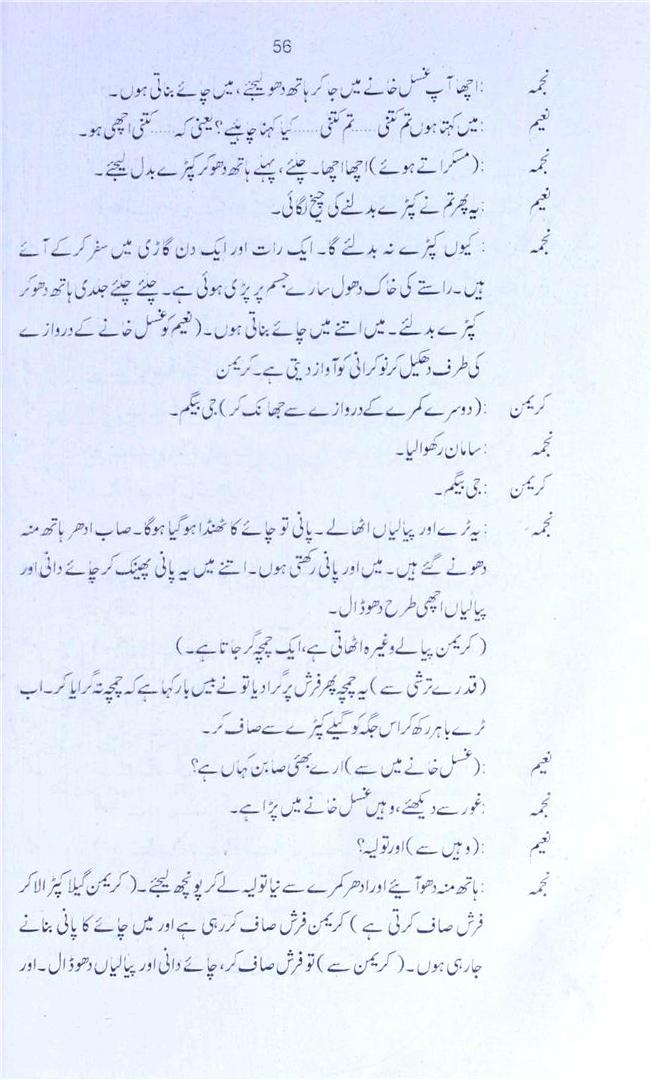 56
نجمہ :اچھا آپ غسل خانے میں جا کر ہاتھ دھو لیجئے، میں چائے بناتی ہوں۔
نعیم :میں کہتا ہوں تم کتنی.....تم کتنی......کیا کہنا چاہیے؟ یعنی کہ......کتنی اچھی ہو۔
نجمہ :(مسکراتے ہوئے) اچھا اچھا۔ چلئے، پہلے ہاتھ دھو کر کپڑے بدل لیجئے۔
نعیم :یہ پھر تم نے کپڑے بدلنے کی چیخ لگائی۔
نجمہ :کیوں کپڑے نہ بدلئے گا۔ ایک رات اور ایک دن گاڑی میں سفر کر کے آئے
ہیں۔ راستے کی خاک دھول سارے جسم پر پڑی ہوئی ہے۔ چلئے چلئے جلدی ہاتھ دھو کر
کپڑے بدلئے۔ میں اتنے میں چائے بناتی ہوں۔ (نعیم کو غسل خانے کے دروازے
کی طرف دھکیل کر نوکرانی کو آواز دیتی ہے۔ کریمن
کریمن :(دوسرے کمرے کے دروازے سے جھانک کر) جی بیگم۔
نجمہ :سامان رکھوا لیا۔
کریمن :جی بیگم۔
نجمہ :یہ ٹرے اور پیالیاں اٹھا لے۔ پانی تو چائے کا ٹھنڈا ہو گیا ہوگا۔ صاب ادھر ہاتھ منہ
دھونے گئے ہیں۔ میں اور پانی رکھتی ہوں۔ اتنے میں یہ پانی پھینک کر چائے دانی اور
پیالیاں اچھی طرح دھو ڈال۔
(کریمن پیالے وغیرہ اٹھاتی ہے، ایک چمچہ گر جاتا ہے۔)
(قدرے ترشی سے) یہ چمچہ پھر فرش پر گرا دیا تو نے بیس بار کہا ہے کہ چمچہ نہ گرایا کر۔ اب
ٹرے باہر رکھ کر اس جگہ کو گیلے کپڑے سے صاف کر۔
نعیم :(غسل خانے میں سے) ارے بھئی صابن کہاں ہے؟
نجمہ :غور سے دیکھئے، وہیں غسل خانے میں پڑا ہے۔
نعیم :(وہیں سے) اور تولیہ؟
نجمہ :ہاتھ منہ دھو آئیے اور ادھر کمرے سے نیا تولیہ لے کر پونچھ لیجئے۔ (کریمن گیلا کپڑا لا کر
فرش صاف کرتی ہے) کریمن فرش صاف کر رہی ہے اور میں چائے کا پانی بنانے
جا رہی ہوں۔ (کریمن سے) تو فرش صاف کر، چائے دانی اور پیالیاں دھو ڈال۔ اور